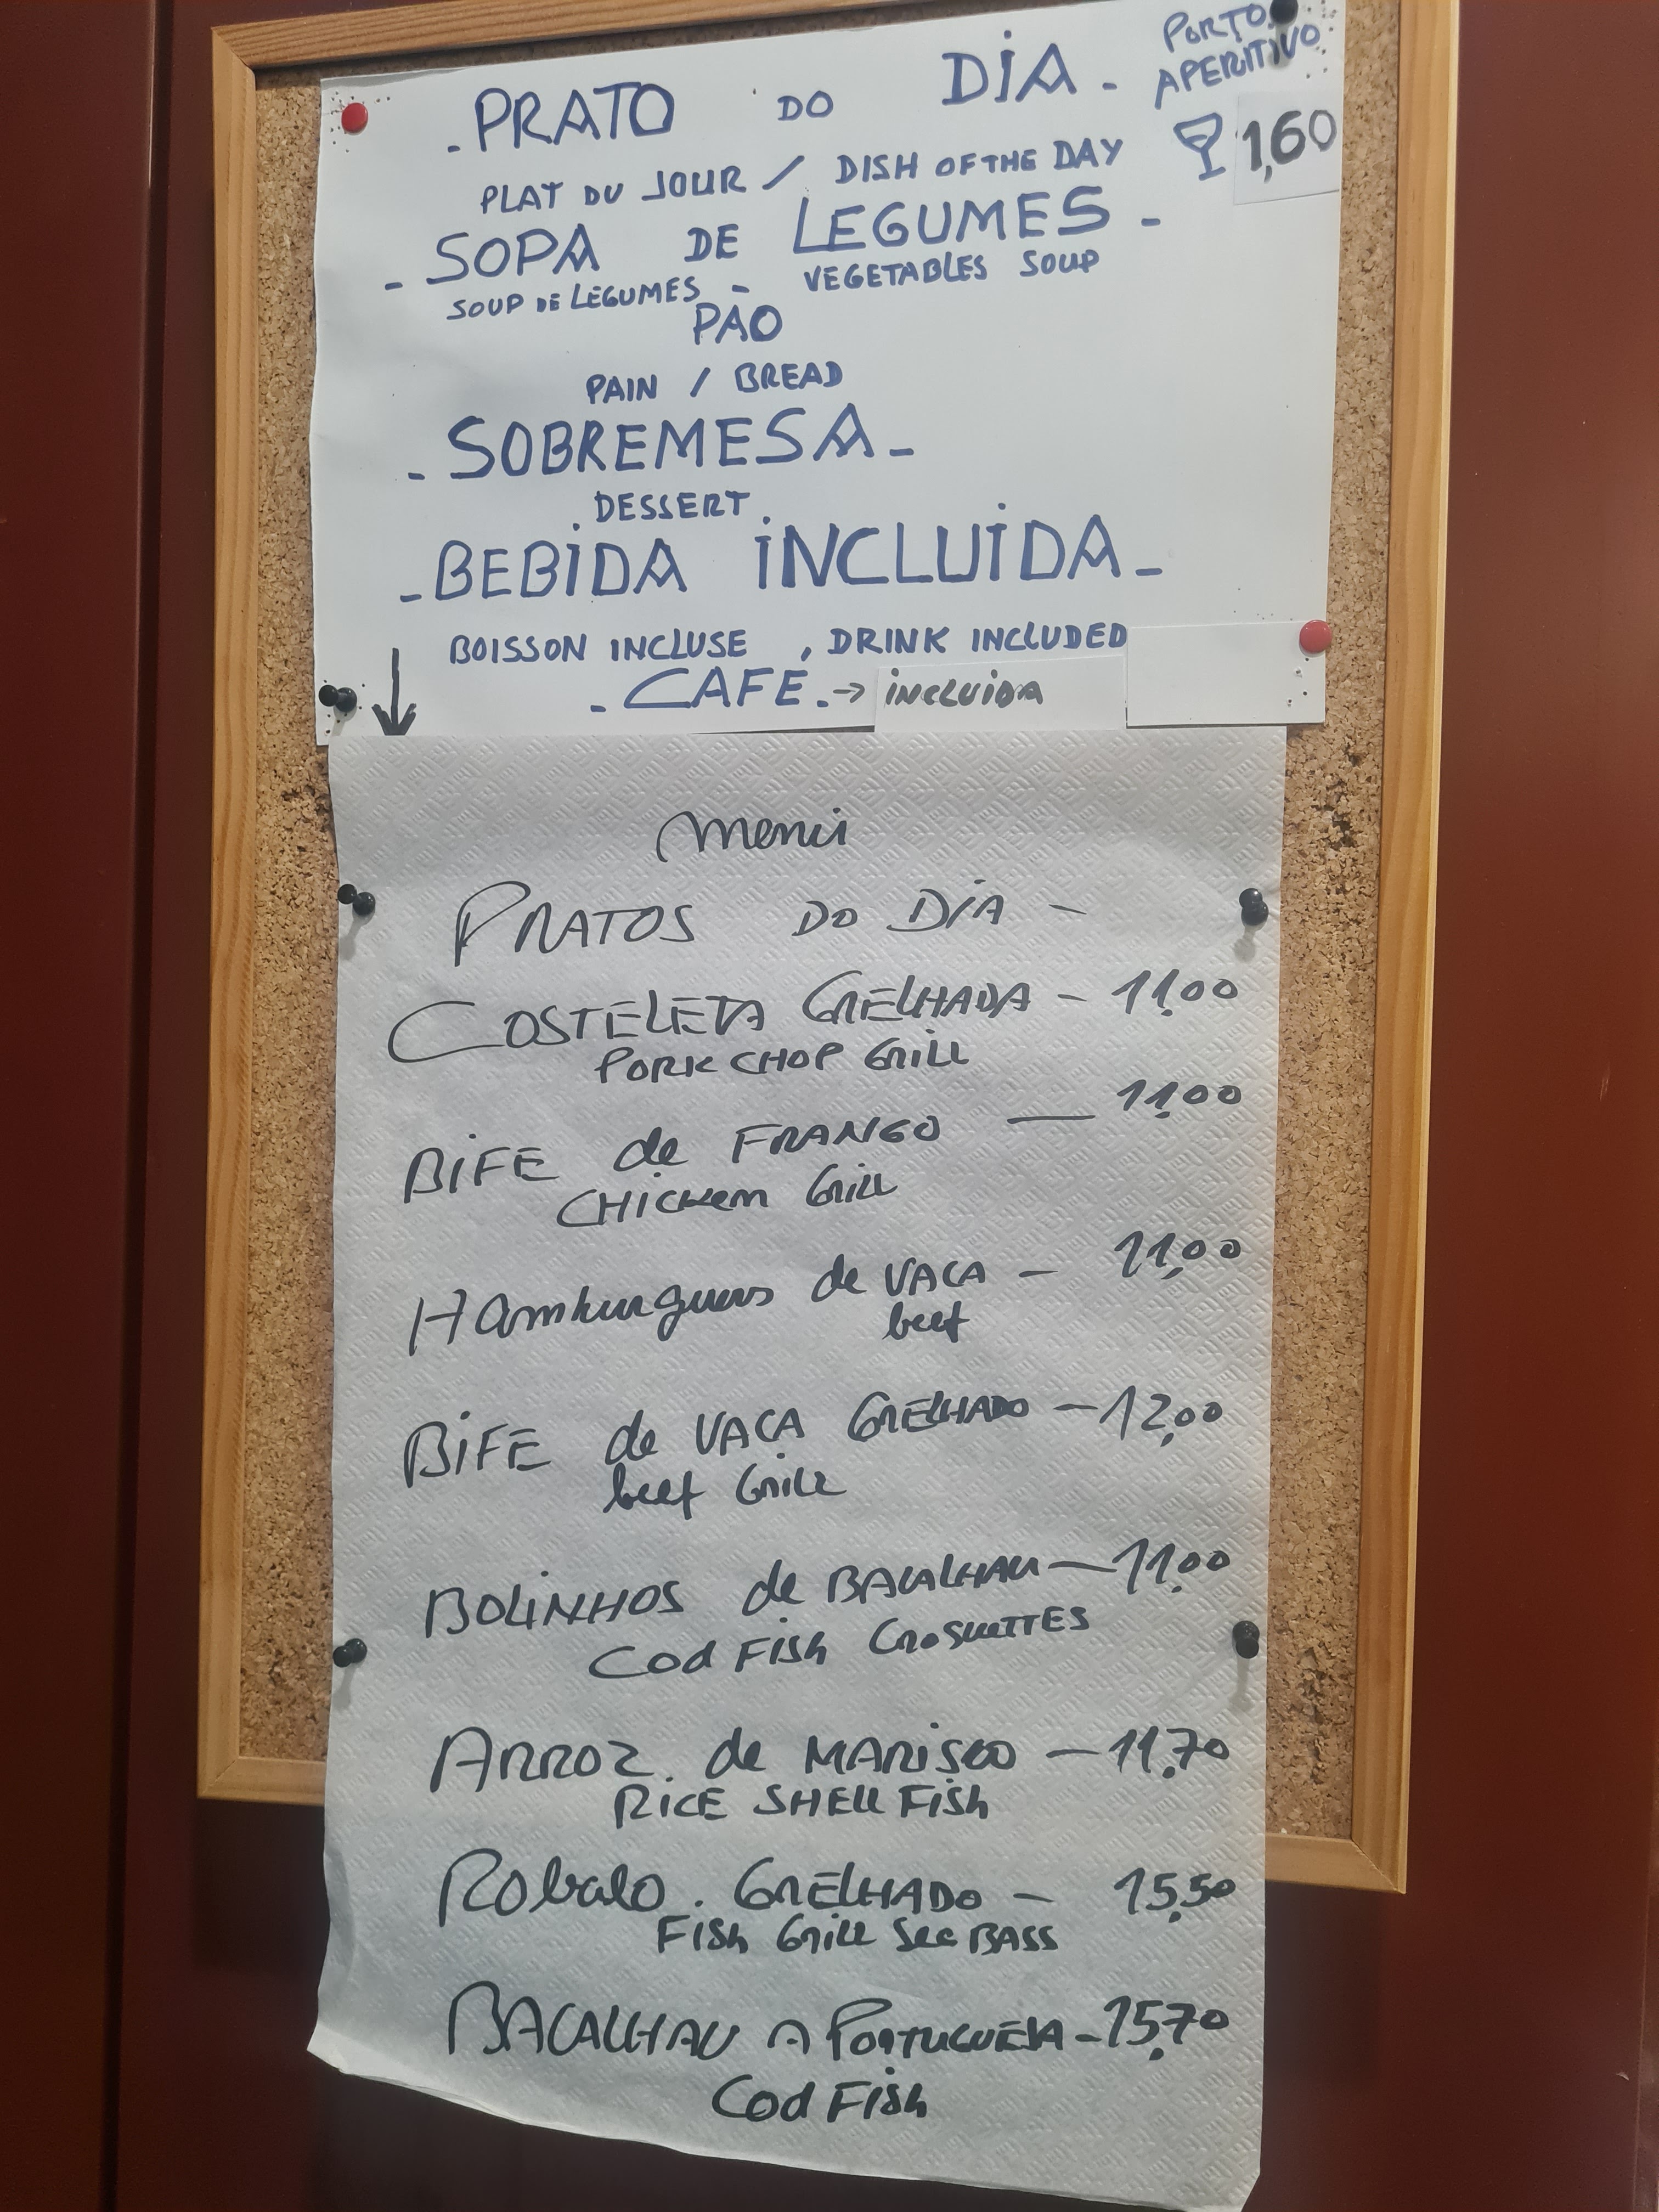 PORTO
APERITIVO
1,60
- PRATO DO DIA -
PLAT DU JOUR / DISH OF THE DAY
- SOPA DE LEGUMES -
SOUP DE LEGUMES - VEGETABLES SOUP
PAO
PAIN / BREAD
- SOBREMESA -
DESSERT
- BEBIDA INCLUIDA -
BOISSON INCLUSE , DRINK INCLUDED
- CAFE. → INCLUIDA
Menu
PRATOS DO DIA -
COSTELETA GRELHADA - 11,00
PORK CHOP GRILL
BIFE de FRANGO — 11,00
CHICKEM GRILL
Hamburguers de VACA - 11,00
beef
BIFE de VACA GRELHADO - 12,00
beef GRILL
BOLINHOS de BACALHAU - 11,00
Cod FISH CROSUETTES
ARROZ de MARISCO - 11,70
RICE SHELL FISH
Robalo GRELHADO - 15,50
FISH GRILL See BASS
BACALHAU A PORTUGUESA - 15,70
Cod FISH